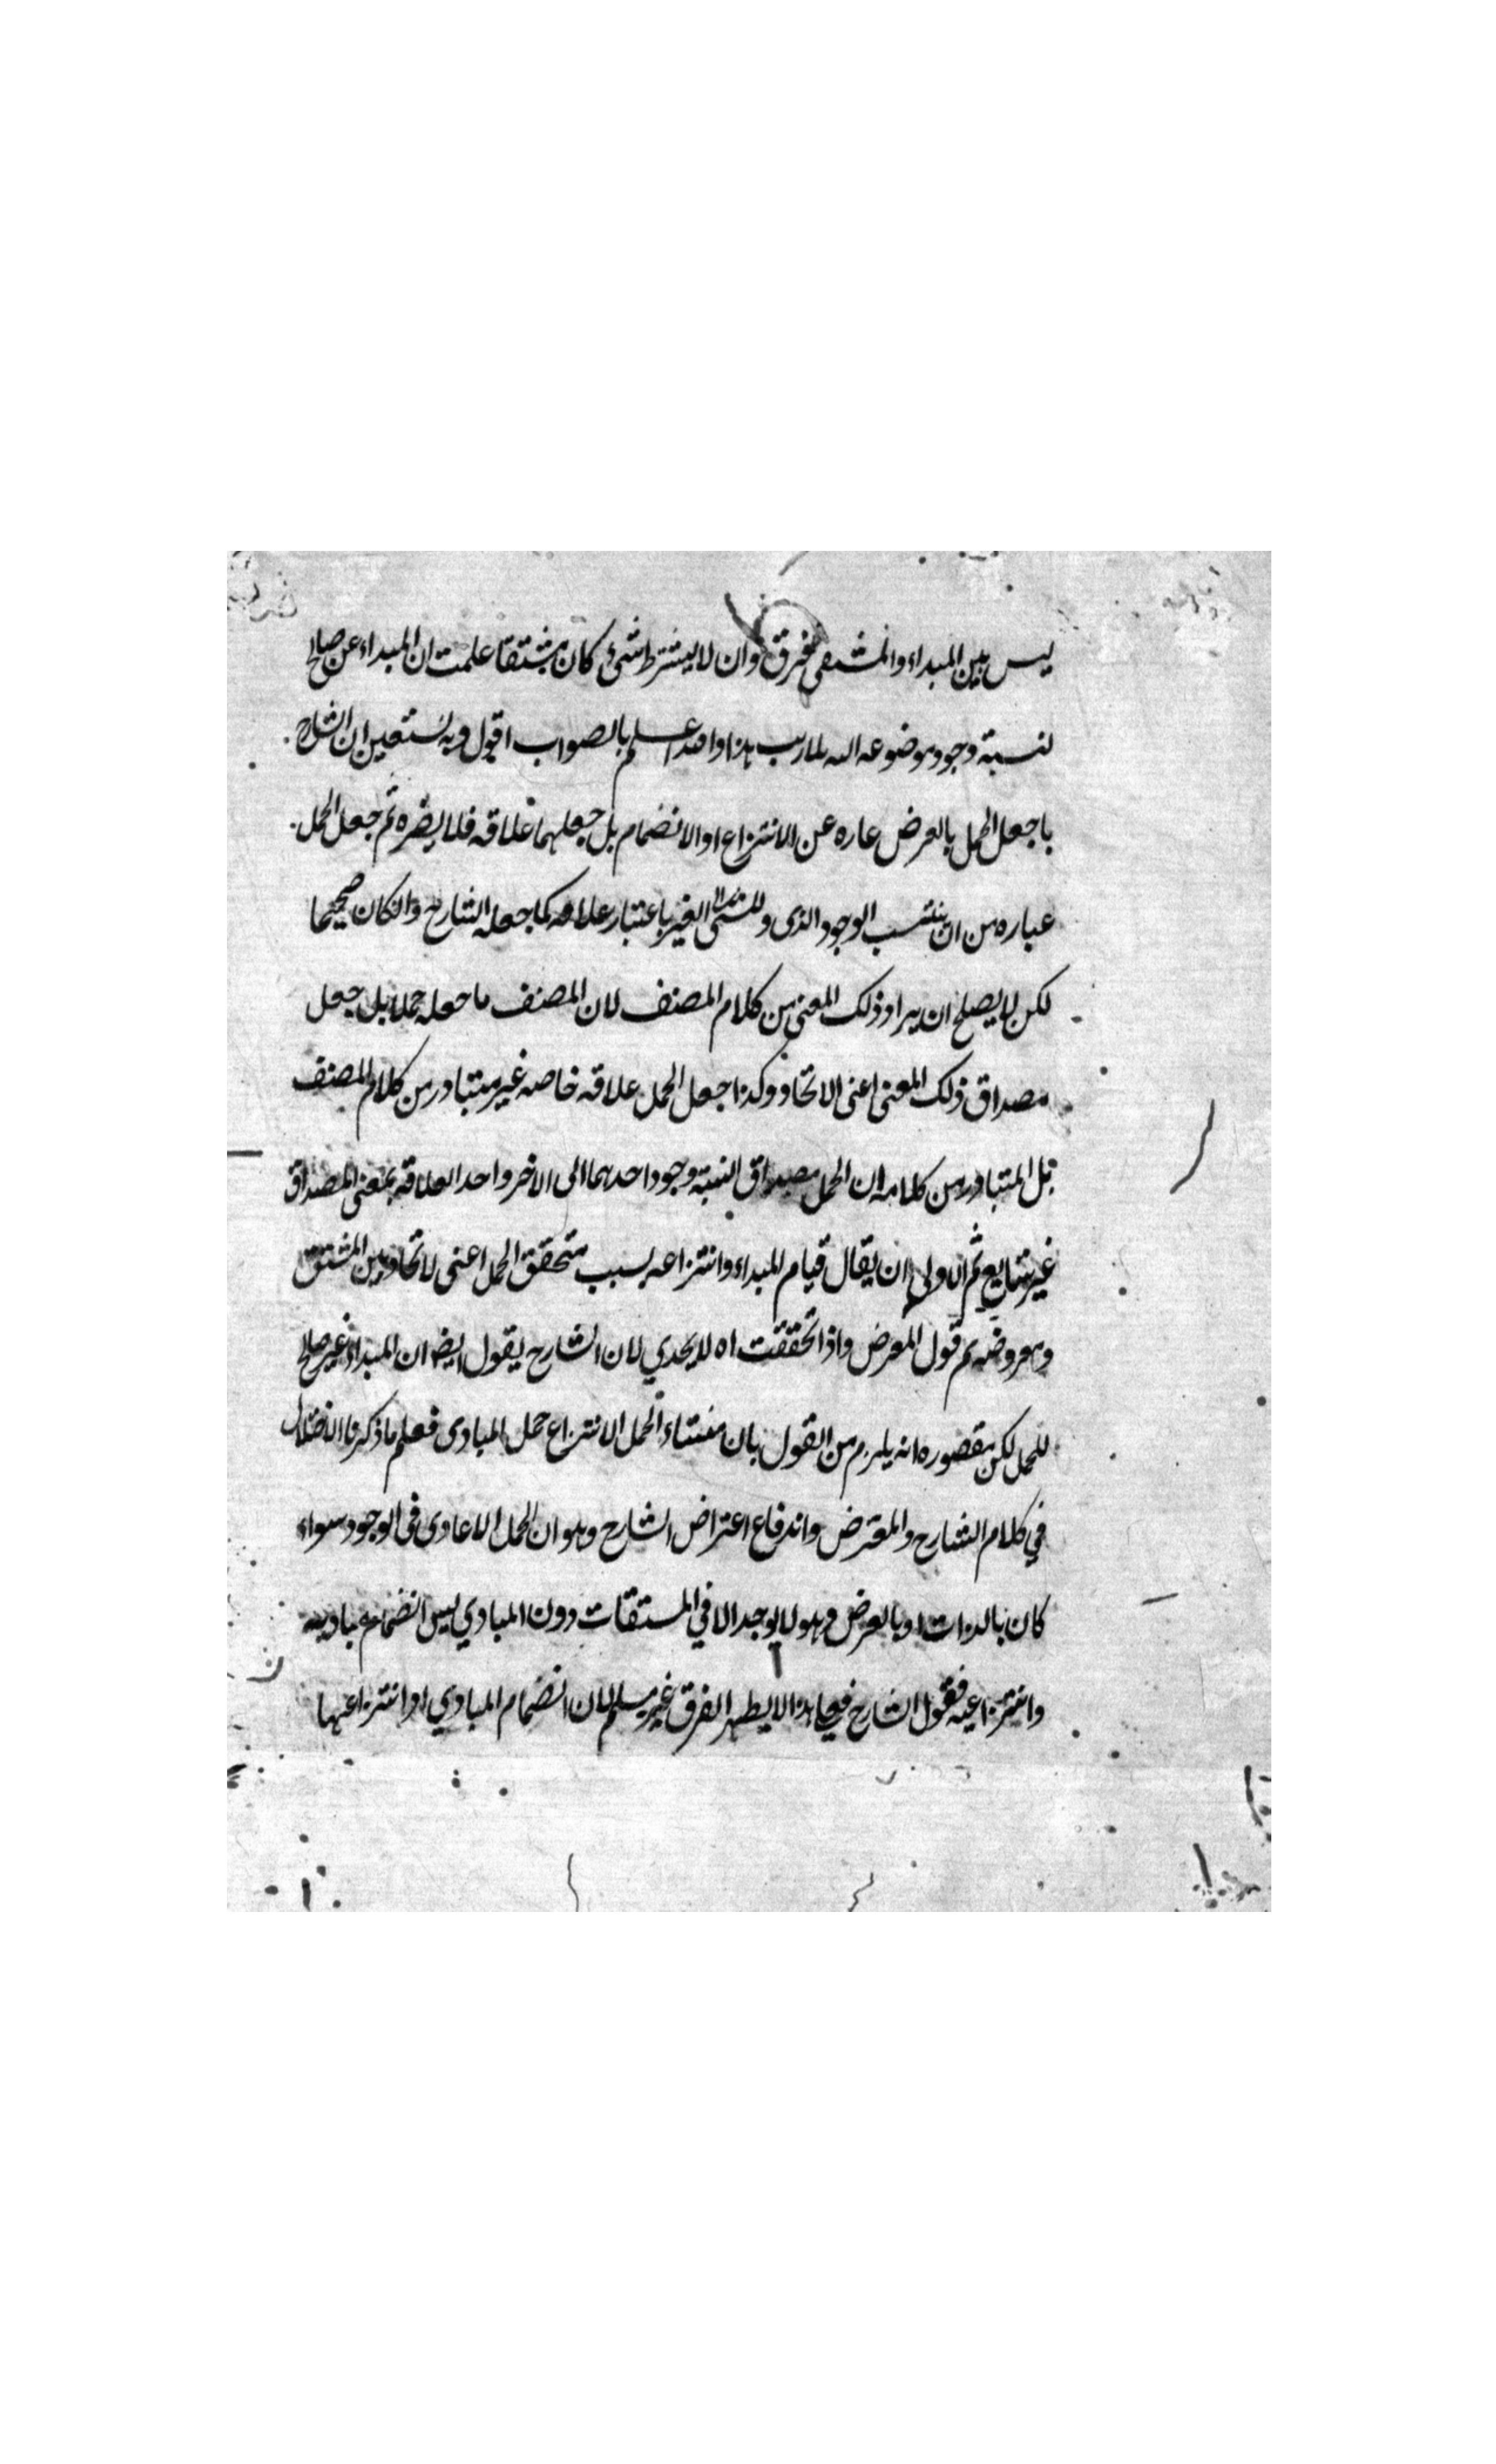 ليس بين المبداء والمشتق فرق وان لا يشترط شئ كان مشتقا علمت ان المبداء عن صالح
لنسبة وجود موضوعه اليه بلا ريب هذا والله اعلم بالصواب اقول وبه نستعين ان الشارح
ما جعل الحمل بالعرض عباره عن الانتزاع او الانضمام بل جعلهما علاقه فلا يضره ثم جعل الحمل
عباره من ان ينتسب الوجود الذى الغير باعتبار علاقه كما جعله الشارح وان كان صحيحا
لكن لا يصلح ان يراد ذلك المعنى من كلام المصنف لان المصنف ما جعله حملا بل جعل
مصداق ذلك المعنى اعنى الاتحاد وكذا جعل الحمل علاقه خاصه غير متبادر من كلام المصنف
بل المتبادر من كلامه ان الحمل مصداق النسبة وجود احدهما الى الاخر واحد العلاقة بمعنى المصداق
غير شايع ثم الاولى ان يقال قيام المبداء وانتزاعه بسبب تحقق الحمل اعنى لاتحاد بين المشتق
ومعروضه ثم قول المعرض واذا تحققت اه لا يجدي لان الشارح يقول ايضا ان المبداء غير صالح
للحمل لكن مقصوره انه يلزم من القول بان منشاء الحمل الانتزاع حمل المبادى فعلم ما ذكرنا الاختلال
في كلام الشارح والمعترض واندفاع اعتراض الشارح وهو ان الحمل الاعادى فى الوجود سواء
كان بالذات او بالعرض وهو لا يوجد الا في المشتقات دون المبادي ليس انضمام مباديه
وانتزاعيه فقول الشارح فيجا هذا لا يظهر الفرق غير مسلم لان انضمام المبادي او انتزاعيها